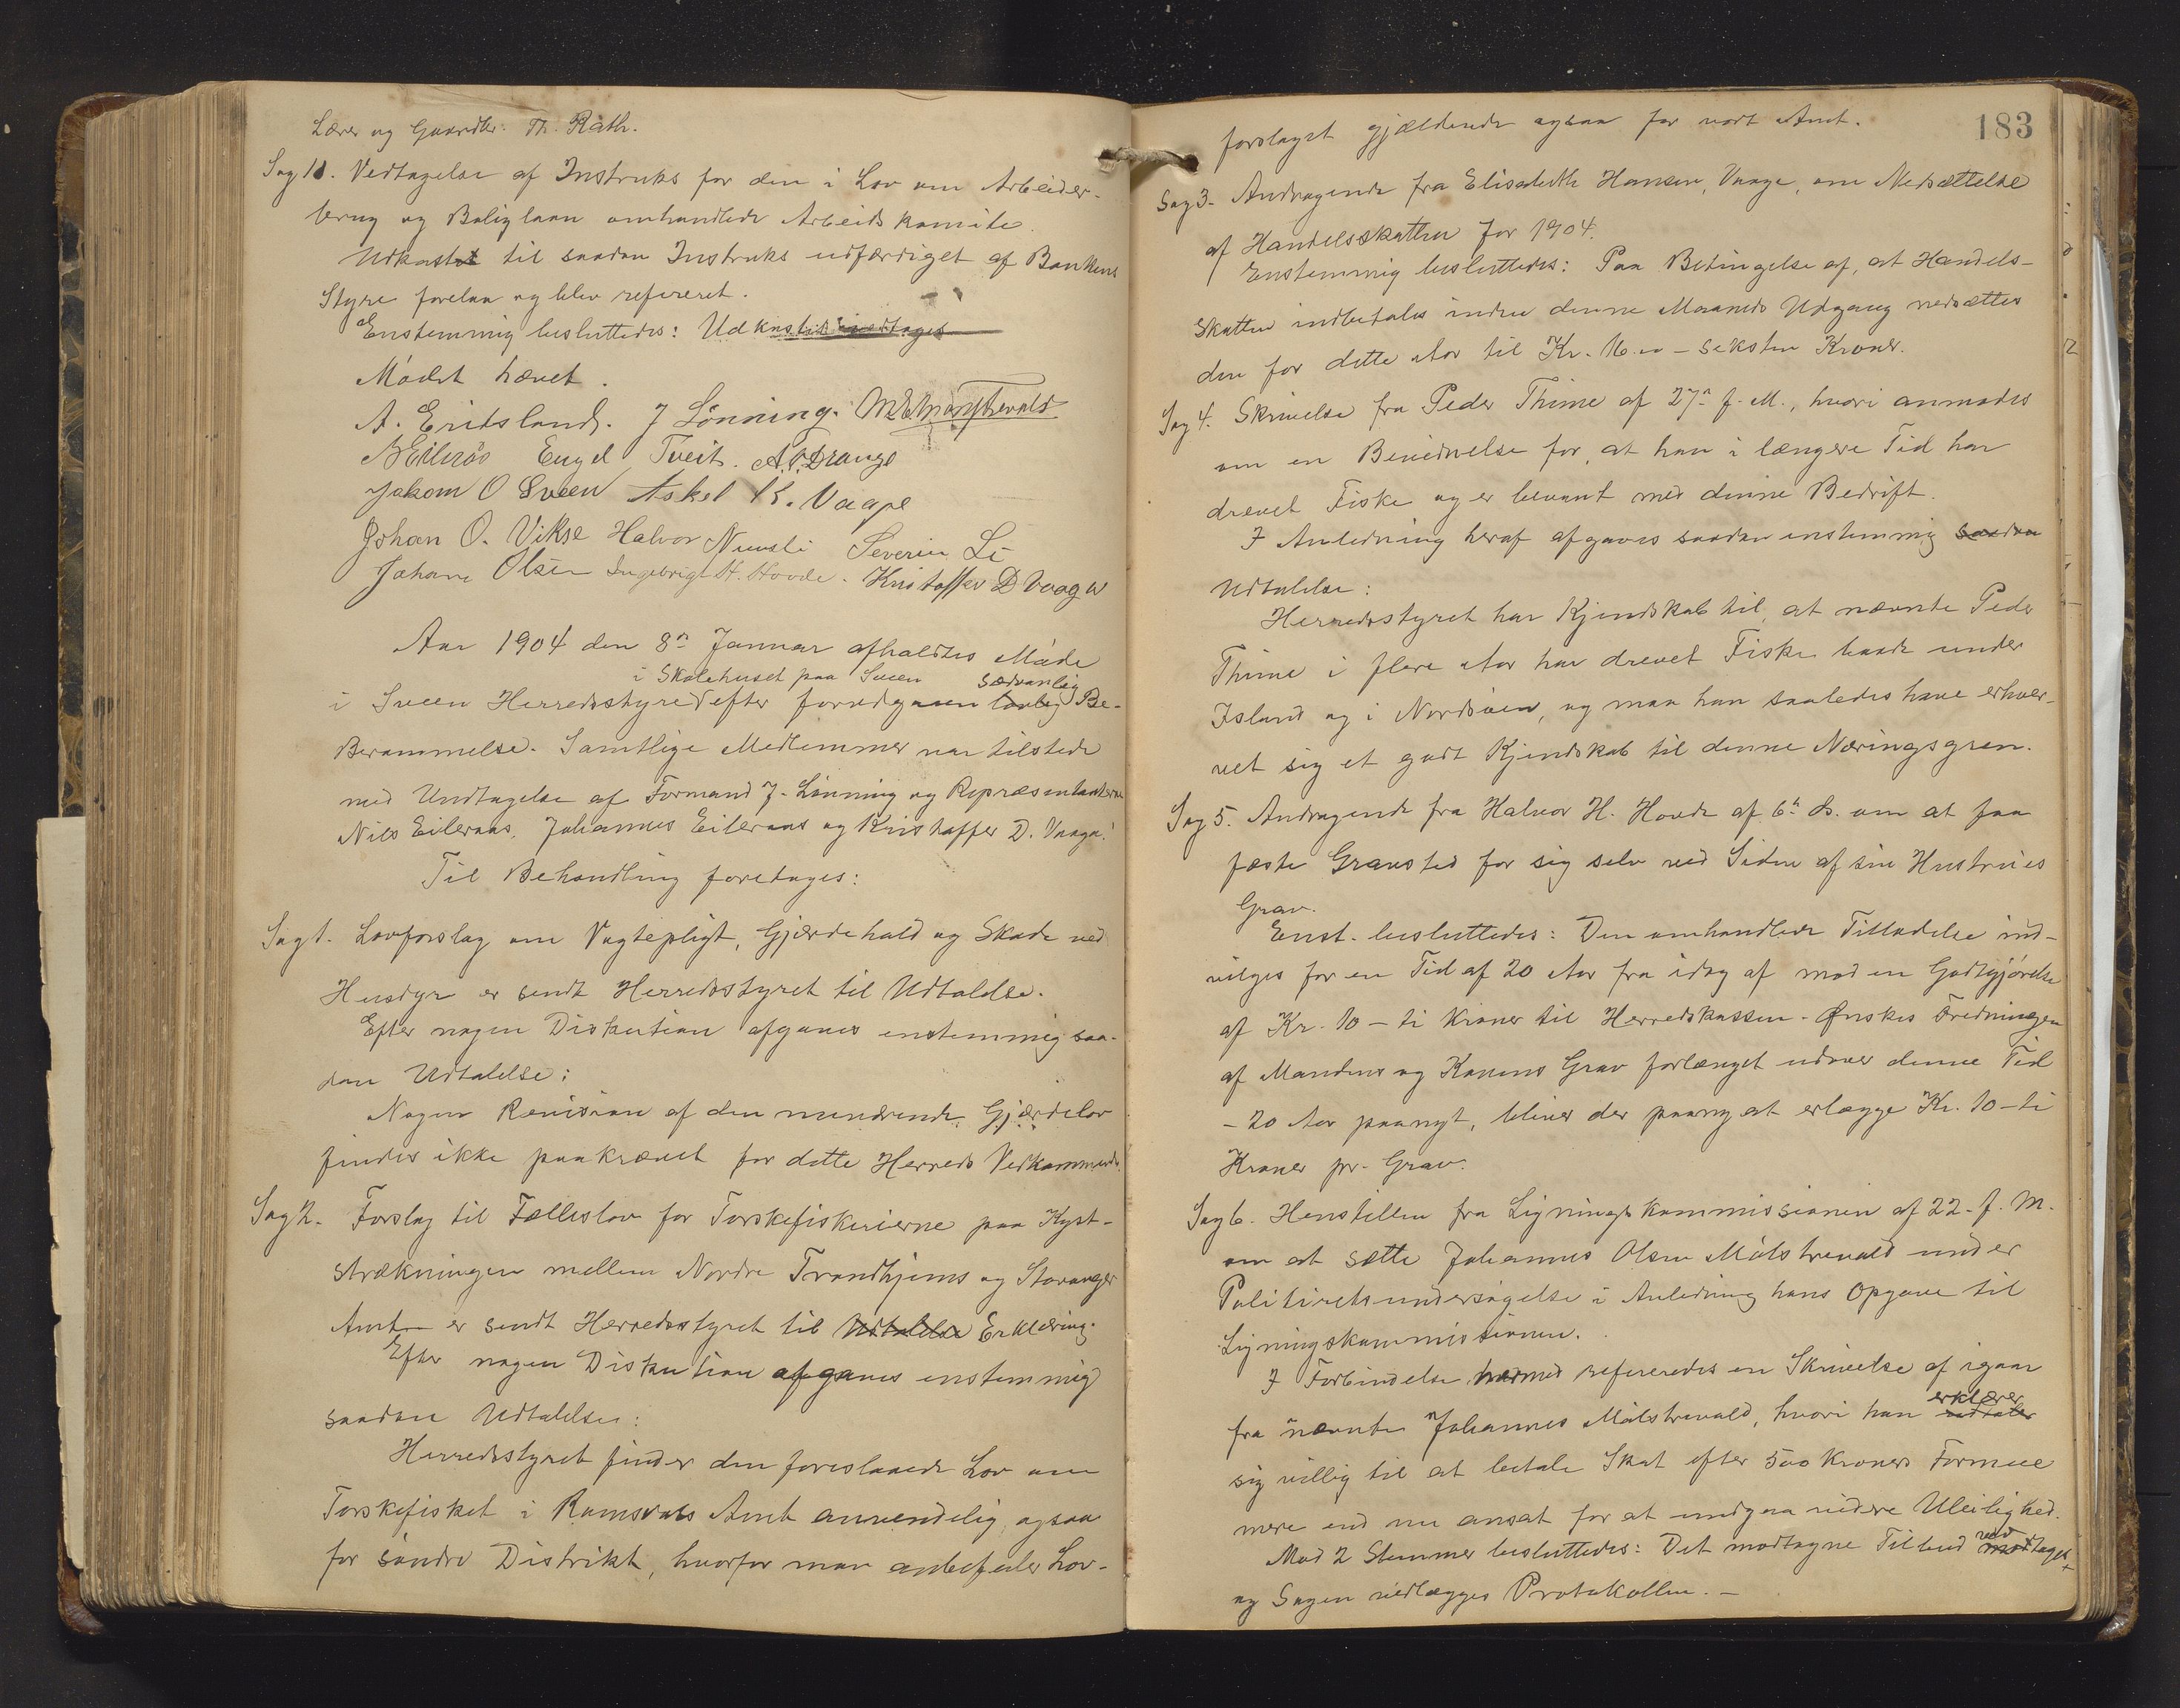 Lærer og Gaardbr. Th. Rath.
Sag 11. Vedtagelse af Instruks for den i Lov om Arbeider-
brug og Boliglaan omhandlede Arbeidskomite.
Udkastet til saadan Instruks udfærdiget af Bankens
Styre forelaa og blev refereret.
Enstemmig besluttedes: Udkastet vedtages
Mødet hævet.
A. Eridsland. J Lönning.
NEilerås Engel Tveit. A.O.Drange
Jakom O Sveen Askel K. Vaage
Johan O. Vikse Halvor Nuvsli Severin Li
Johan Olsen Ingebrigt H. Hovde. Kristoffer D Vaage
Aar 1904 den 8n Januar afholdtes Møde
i Skolehuset paa Sveen sædvanlig
i Sveen Herredsstyre efter foredgaaen lovlig Be-
Berammelse. Samtlige Medlemmer var tilstede
med Undtagelse af Formand J. Lönning og Repræsentanterne
Nils Eileraas, Johannes Eileraas og Kristoffer D. Vaage.
Til Behandling foretages:
Sag 1. Lovforslag om Vogtepligt, Gjærdehold og Skade ved
Husdyr er sendt Herredsstyret til Udtalelse.
Efter nogen Diskution afgaves enstemmig saa-
dan Udtalelse:
Nogen Revision af den nuværende Gjærdelov
findes ikke paakrævet for dette Herreds Vedkommende.
Sag 2. Forslag til Fælleslov for Torskefiskerierne paa Kyst-
strækningen mellem Nordre Trondhjems og Stavanger
Amt er sendt Herredsstyret til Udtalelse Erklæring.
Efter nogen Diskution afgaves enstemmig
saadan Udtalelse:
Herredsstyret finder den foreslaaede Lov om
Torskefisket i Romsdals Amt anvendelig ogsaa
for søndre Distrikt, hvorfor man anbefaler Lov-
183
forslaget gjældende ogsaa for vort Amt.
Sag 3. Andragende fra Elisabeth Hansen, Vaage, om Nedsættelse
af Handelsskatten for 1904.
Enstemmig besluttedes: Paa Betingelse af, at Handels-
Skatten indbetales inden denne Maaneds Udgang nedsættes
den for dette Aar til Kr. 16.00 – seksten Kroner.
Sag 4. Skrivelse fra Peder Thime af 27n f. M., hvori anmodes
om en Bevidnelse for, at han i længere Tid har
drevet Fiske og er bevant med denne Bedrift.
I Anledning heraf afgaves saadan enstemmig saadan
Udtalelse:
Herredsstyret har Kjendskab til, at nævnte Peder
Thime i flere Aar har drevet Fiske baade under
Island og i Nordsöen, og maa han saaledes have erhver-
vet sig et godt Kjendskab til denne Næringsgren.
Sag 5. Andragende fra Halvor H. Hovde af 6te ds. om at faa
fæste Gravsted for sig selv ved Siden af sin Hustrues
Grav.
Enst. besluttedes: Den omhandlede Tilladelse ind-
vilges for en Tid af 20 Aar fra idag af mod en Godtgjörelse
af Kr. 10 – ti Kroner til Herredskassen. Ønskes Fredningen
af Mandens og Konens Grav forlænget udover denne Tid
– 20 Aar paanyt, bliver der paany at erlægge Kr. 10 – ti
Kroner pr. Grav.
Sag 6. Henstillen fra Ligningskommissionen af 22. f. M.
om at sætte Johannes Olsen Målstrevold under
Politiretsundersøgelse i Anledning hans Opgave til
Ligningskommissionen.
I Forbindelse hermed refereredes en Skrivelse af igaar
erklærer
fra nævnte Johannes Målstrevold, hvori han udtaler
sig villig til at betale Skat efter 500 Kroners Formue
mere end nu ansat for at undgaa videre Uleilighed.
ved
Mod 2 Stemmer besluttedes: Det modtagne Tilbud modtages
og Sagen vedlægges Protokollen. –